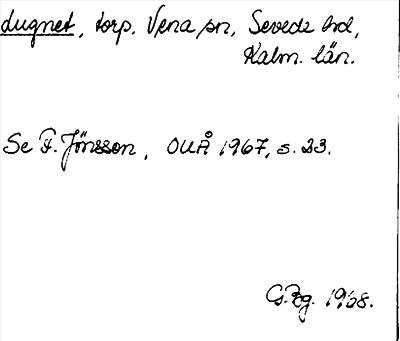 Lugnet, torp. Vena sn, Sevede hd,
Kalm. län.
Se F. Jönsson, OUÅ 1967, s. 23.
1968.